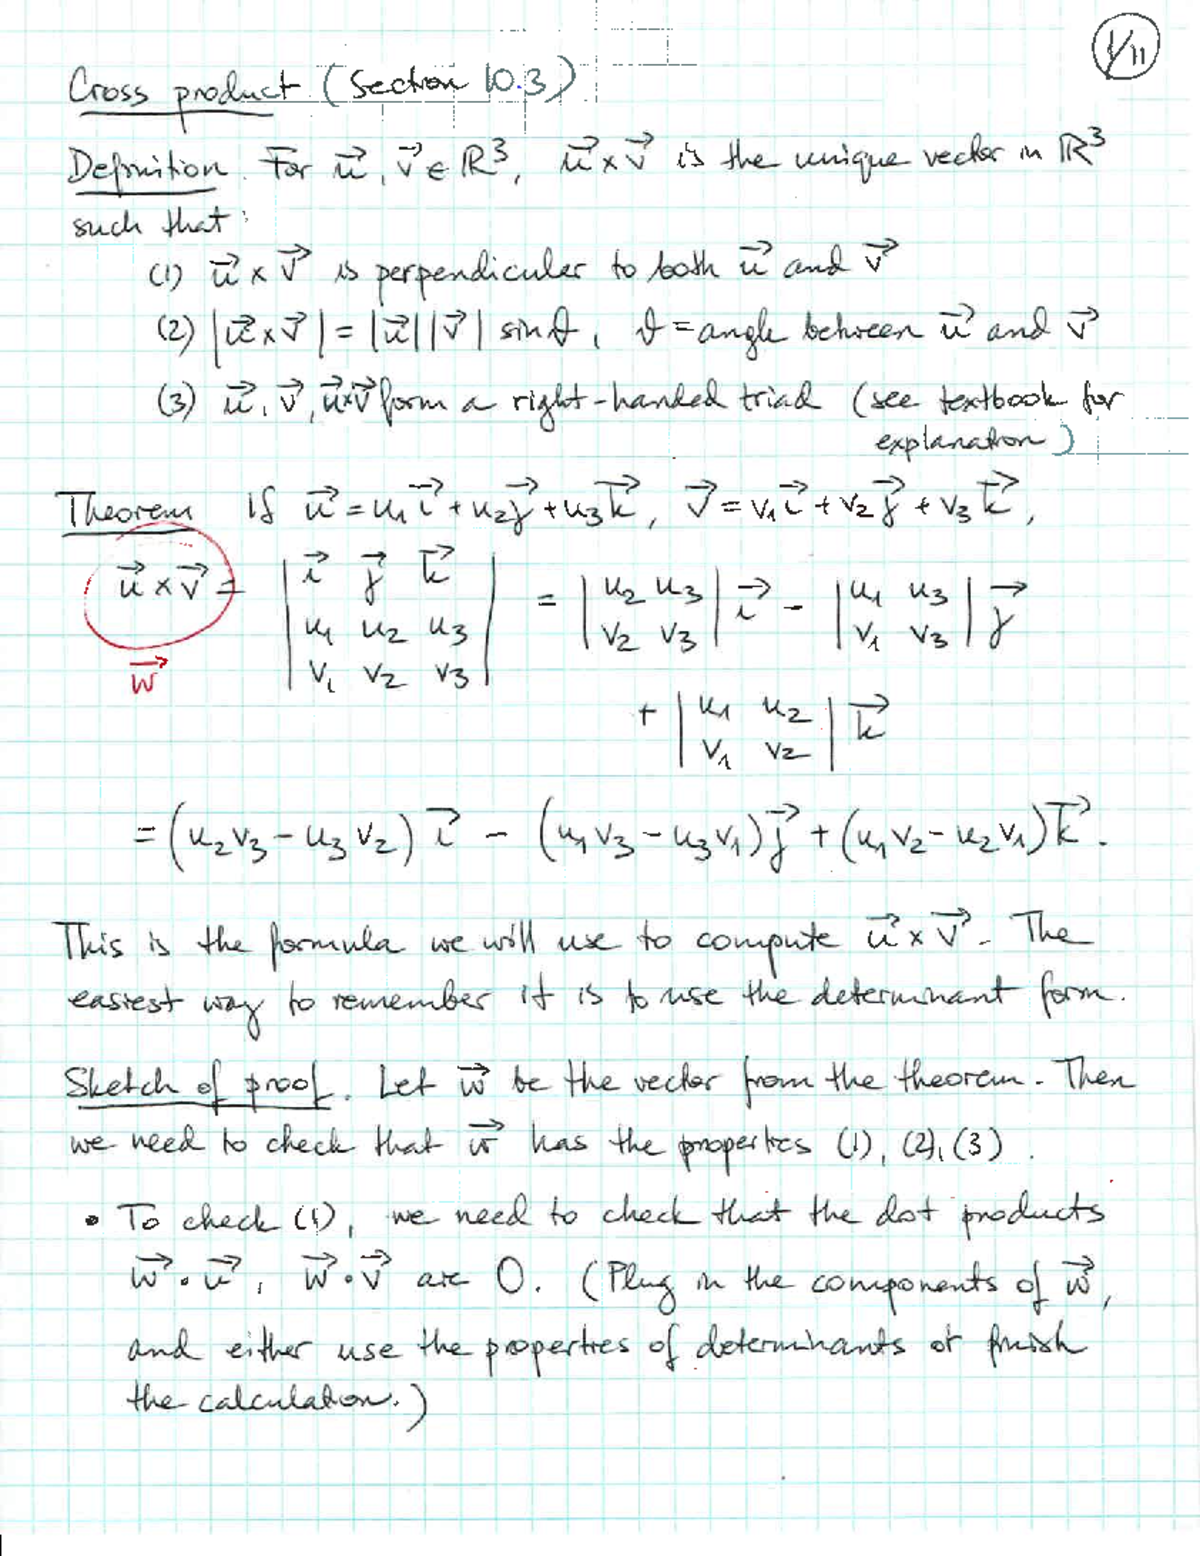 1/11
Cross product (Section 10.3)
Definition. For u⃗, v⃗ ∈ ℝ³, u⃗ × v⃗ is the unique vector in ℝ³
such that:
(1) u⃗ × v⃗ is perpendicular to both u⃗ and v⃗
(2) |u⃗ × v⃗| = |u⃗||v⃗| sin θ, θ = angle between u⃗ and v⃗
(3) u⃗, v⃗, u⃗×v⃗ form a right-handed triad (see textbook for
explanation)
Theorem If u⃗ = u₁i⃗ + u₂j⃗ + u₃k⃗, v⃗ = v₁i⃗ + v₂j⃗ + v₃k⃗,
u⃗ × v⃗ = | i⃗ j⃗ k⃗ ; u₁ u₂ u₃ ; v₁ v₂ v₃ | = | u₂ u₃ ; v₂ v₃ | i⃗ - | u₁ u₃ ; v₁ v₃ | j⃗
w⃗
+ | u₁ u₂ ; v₁ v₂ | k⃗
= (u₂v₃ - u₃v₂) i⃗ - (u₁v₃ - u₃v₁) j⃗ + (u₁v₂ - u₂v₁) k⃗.
This is the formula we will use to compute u⃗ × v⃗. The
easiest way to remember it is to use the determinant form.
Sketch of proof. Let w⃗ be the vector from the theorem. Then
we need to check that w⃗ has the properties (1), (2), (3).
• To check (1), we need to check that the dot products
w⃗ • u⃗, w⃗ • v⃗ are 0. (Plug in the components of w⃗,
and either use the properties of determinants or finish
the calculation.)